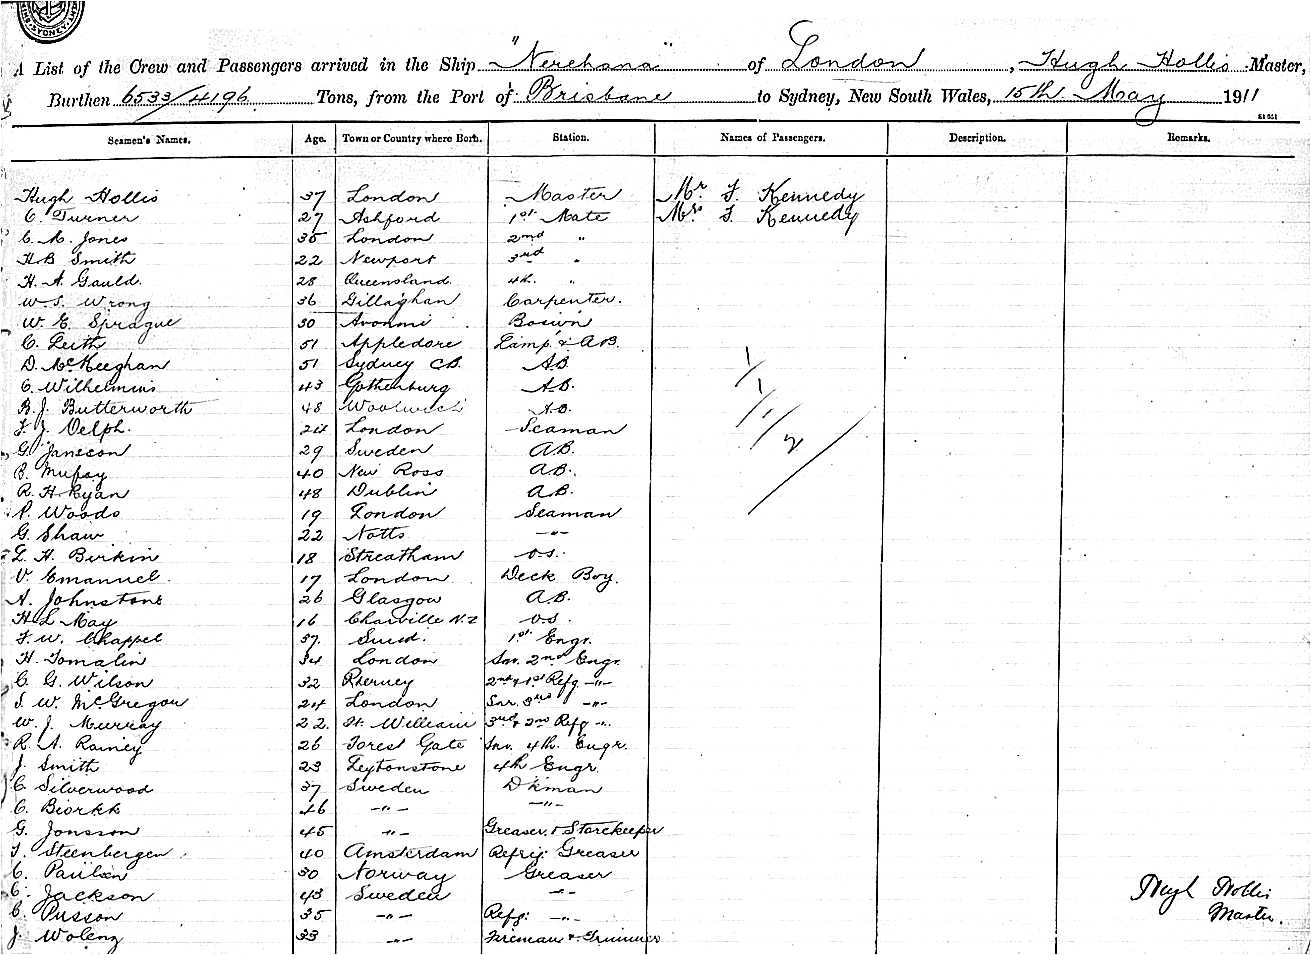 SYDNEY
A List of the Crew and Passengers arrived in the Ship "Nerehana" of London, Hugh Hollis Master,
Burthen 6533/4196 Tons, from the Port of Brisbane to Sydney, New South Wales, 15th May 1911
Seamen's Names. Age. Town or Country where Born. Station. Names of Passengers. Description. Remarks.
Hugh Hollis 37 London Master Mr F. Kennedy
C. Turner 27 Ashford 1st Mate Mrs F. Kennedy
C. M. Jones 35 London 2nd "
H.B Smith 22 Newport 3rd "
H. A. Gauld. 28 Queensland. 4th. "
W. S. Wrong 36 Gillaghan Carpenter.
W. E. Sprague 30 Avonmi Bosiwn
C. Leith 51 Appledore Lamp. & A.B.
D. McKeeghan 51 Sydney C.B. A.B.
C. Wilhelmius 43 Gothenburg A.B.
B. J. Butterworth 48 Woolwich A.B.
F. J. Delph. 24 London Seaman
G. Janscon 29 Sweden A.B.
40 New Ross A.B.
R. H. Ryan 48 Dublin A.B.
P. Woods 19 London Seaman
G. Shaw 22 Notts -"-
L. H. Birkin 18 Streatham o.s.
V. Emanuel. 17 London Deck Boy.
A. Johnstone 26 Glasgow A.B.
H L May 16 Charville N.Z o.s.
F. W. Chappel 37. 1st Engr.
H. Tomalin 34 London Snr. 2nd Engr.
C. G. Wilson 32 2nd & 1st Refg -"-
S. W. McGregor 24 London Snr. 3rd -"-
W. J. Murray 22. Ft. William 3rd & 2nd Refg -"-
R. A. Rainey 26 Forest Gate Jnr. 4th. Engr.
J. Smith 23 Leytonstone 4th Engr.
C. Silverwood 37 Sweden Dkman
C. Biorkk 46 -"- -"-
G. Jonsson 45 -"- Greaser. & Storekeeper
F. Steenbergen 40 Amsterdam Refrig. Greaser
C. Paulsen 30 Norway Greaser
C. Jackson 43 Sweden -"-
C. Pusson 35 -"- Refg: -"-
J. Woleng 33 -"- Fireman & Trimmer
1/
1/
1/
2
Hugh Hollis
Master.